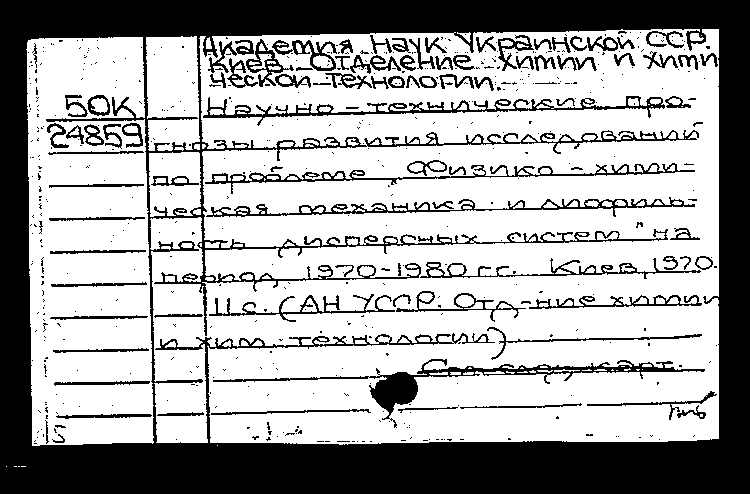 Академия наук Украинской ССР.
Киев. Отделение химии и хими
ческой технологии.
50К
24859
Научно-технические про-
гнозы развития исследований
по проблеме „Физико-хими-
ческая механика и лиофиль-
ность дисперсных систем" на
период 1970-1980 гг. Киев, 1970.
11 с. (АН УССР. Отд-ние химии
и хим. технологии)
См. след. карт.